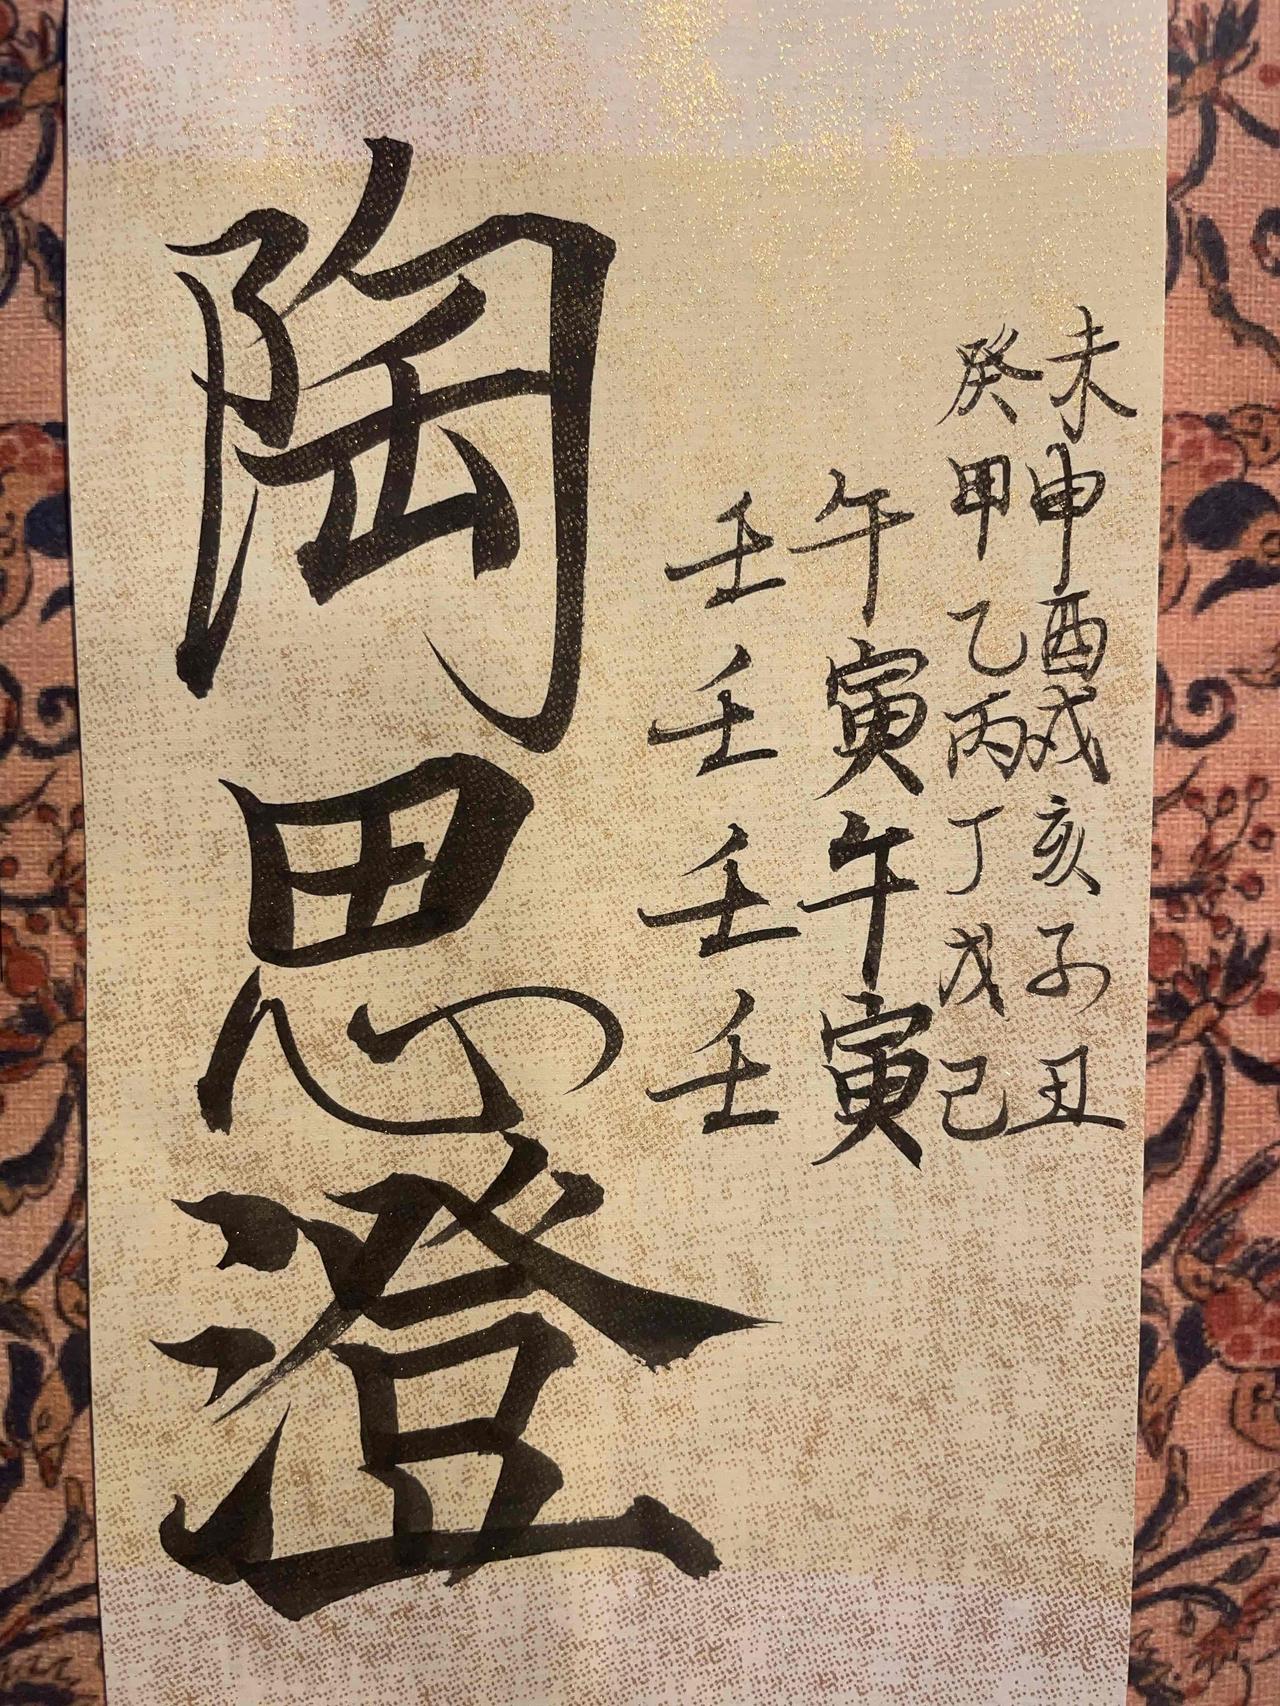 陶思澄
壬午
壬寅
壬午
壬寅
癸未
甲申
乙酉
丙戌
丁亥
戊子
己丑